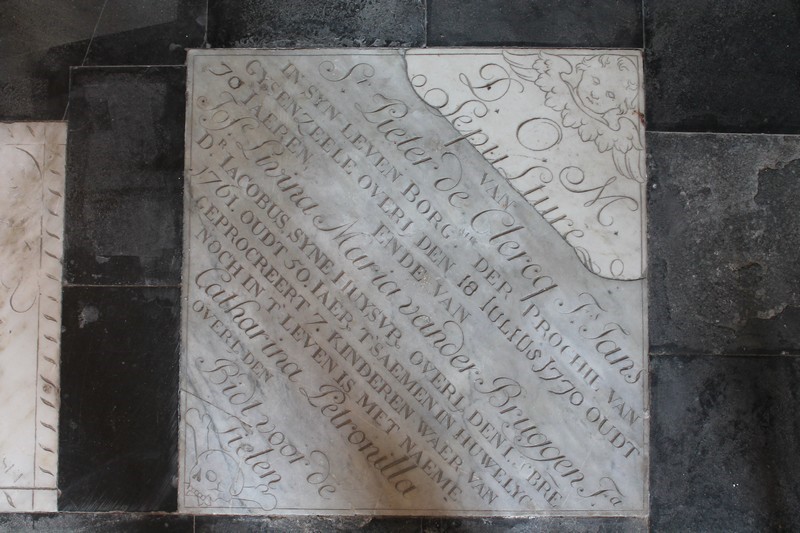 D. O. M.
Sepulture
VAN
Sr. Pieter de Clercq Fs. Jans
IN SYN LEVEN BORGMre. DER PROCHIE VAN
GYSENZEELE OVERL. DEN 18 IULIUS 1770 OUDT
70 IAEREN ENDE VAN
Jofe. Livina Maria vander Bruggen Fa.
Dr. IACOBUS SYNE HUYSVR. OVERL. DEN 1 BRE
1761 OUDT 50. IAER T'SAEMEN IN HUWELYCK
GEPROCREERT 7. KINDEREN WAER VAN
NOCH IN T LEVEN IS MET NAEME
Catharina Petronilla
OVERL. DEN
Bidt voor de
Sielen